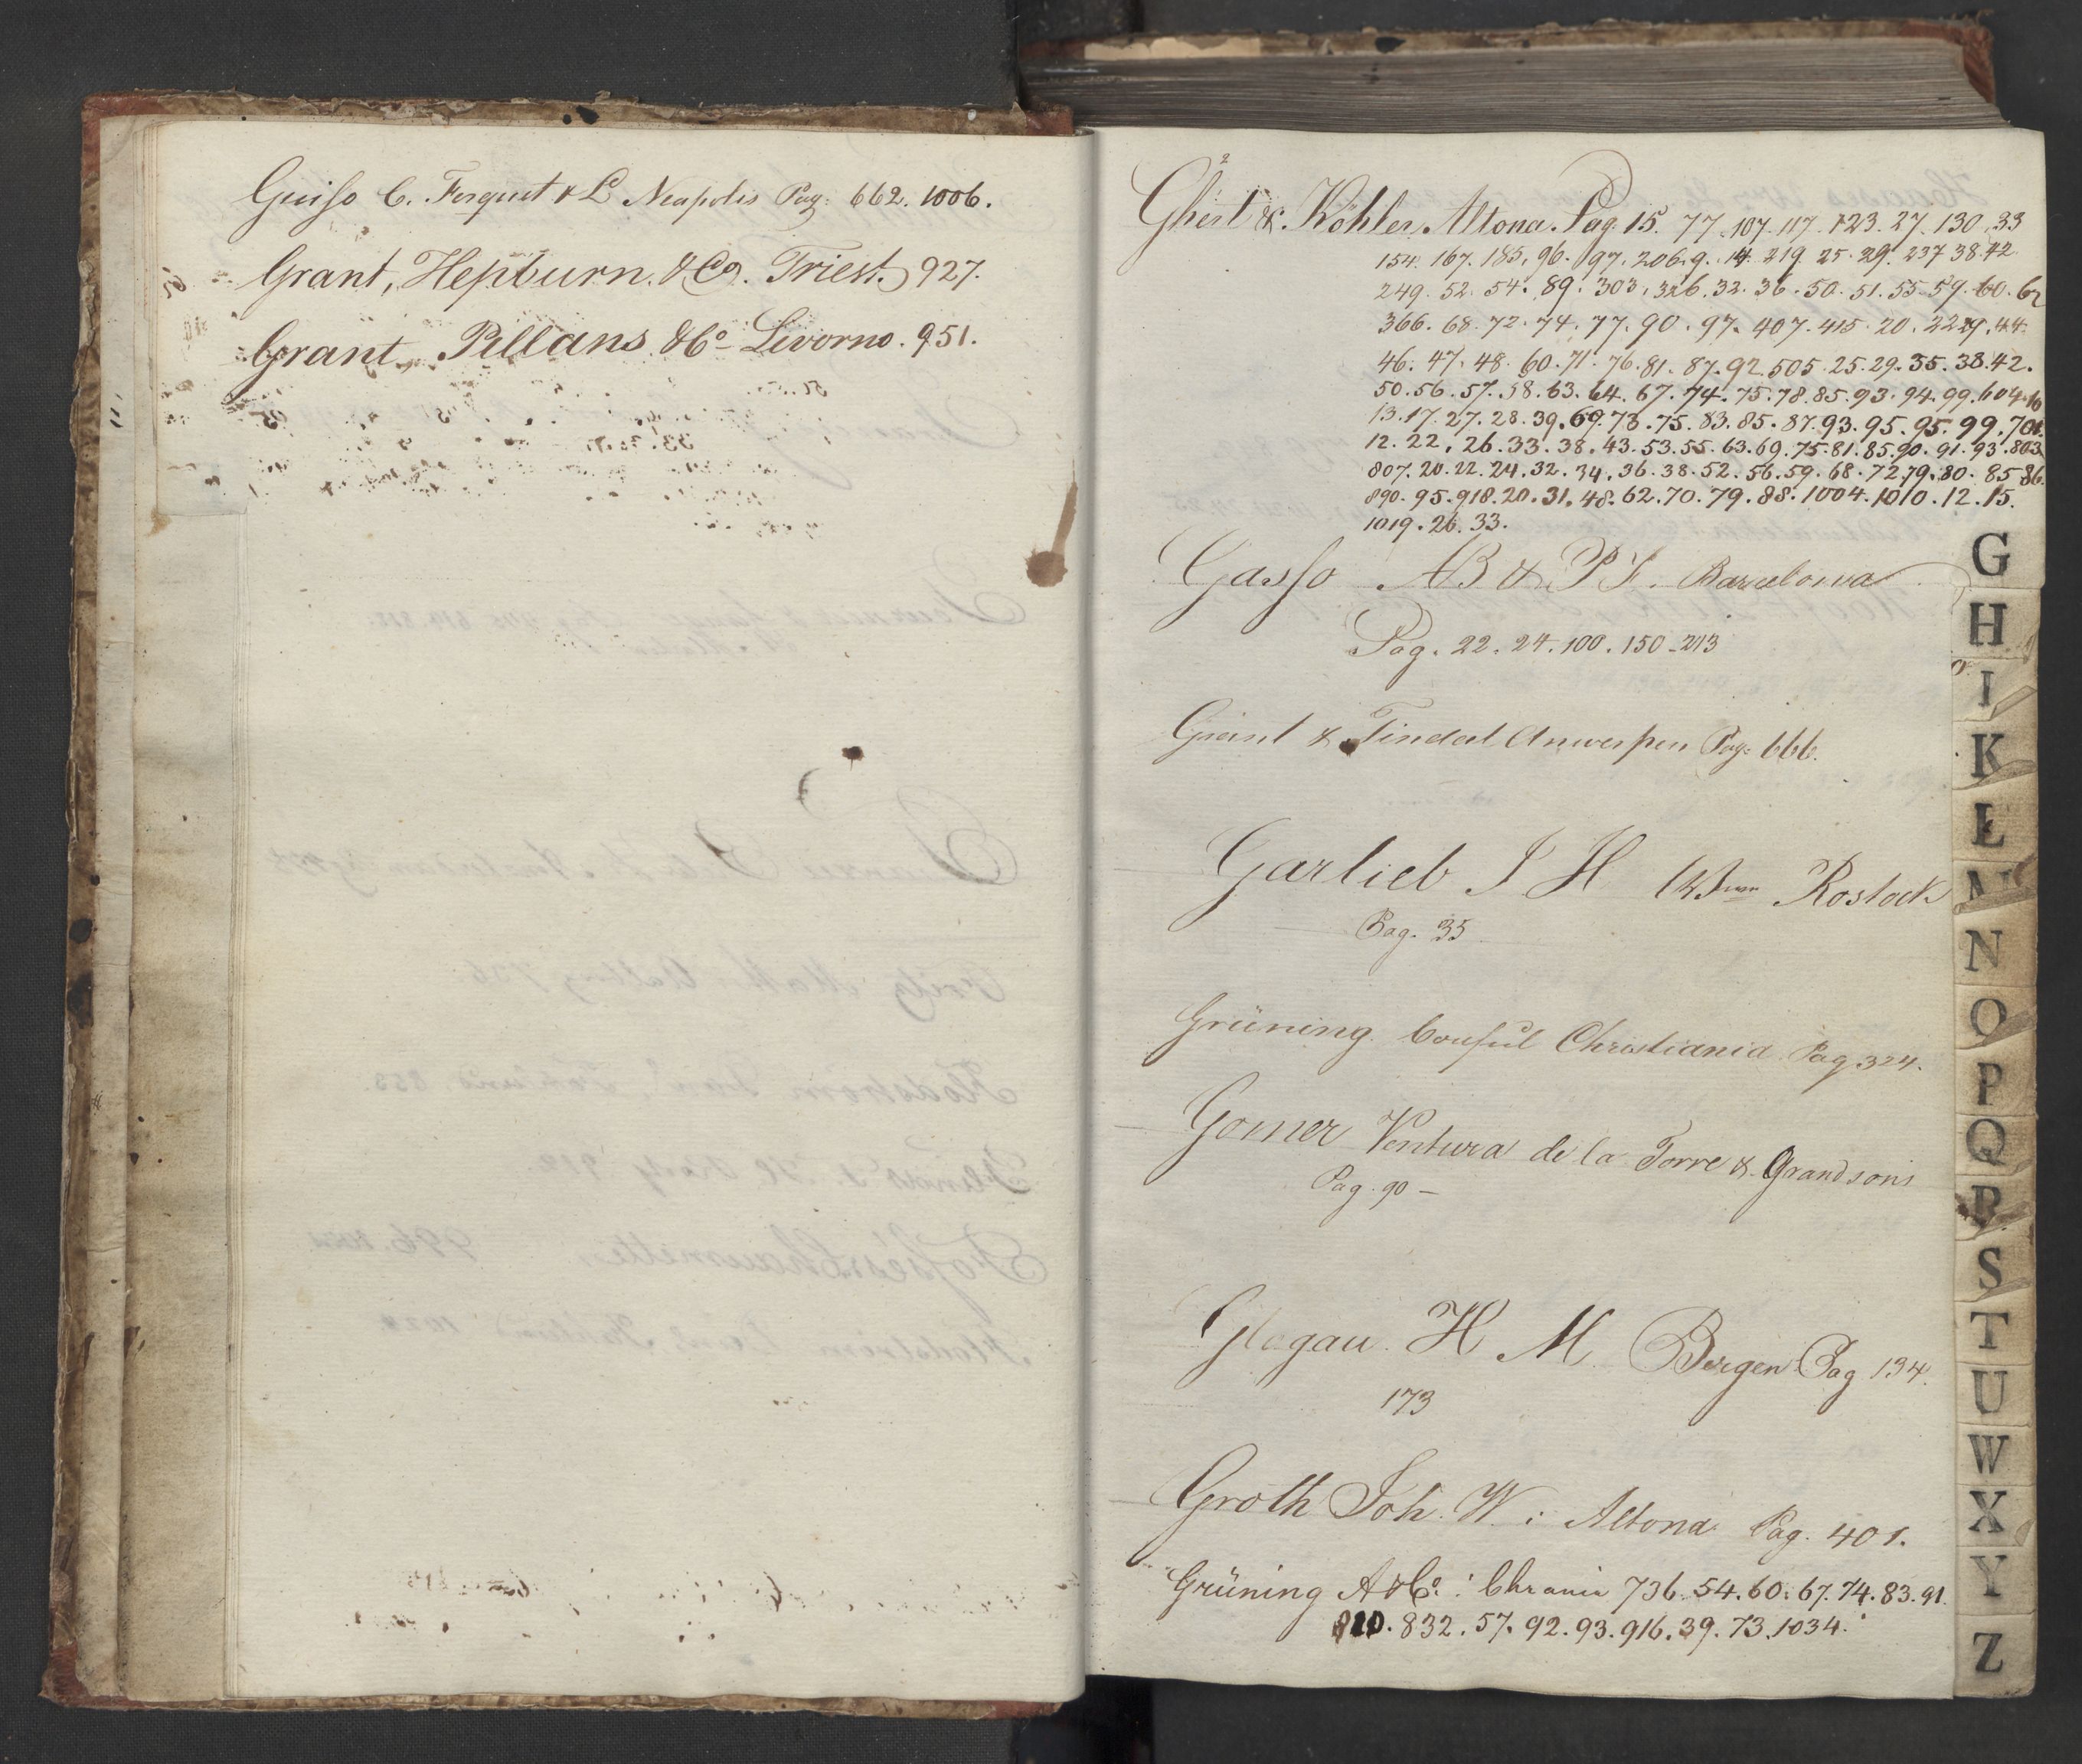 Guiso C. Forquet & C Neapolis Pag: 662. 1006.
Grant, Hepburn. & Co. Triest. 927.
Grant, Pillans & Co Livorno. 951.
2
Ghert & Köhler Altona. Pag. 15. 77. 107. 117. 123. 27. 130. 33
154. 167. 185. 96. 197. 206. 9. 14. 219. 25. 29. 237 38. 42
249. 52. 54. 89. 303. 326. 32. 36. 50. 51. 55. 59. 60. 62
366. 68. 72. 74. 77. 90. 97. 407. 415. 20. 22 29. 44.
46. 47. 48. 60. 71. 76. 81. 87. 92. 505. 25. 29. 35. 38. 42.
50. 56. 57. 58. 63. 64. 67. 74. 75. 78. 85. 93. 94. 99. 604. 10
13. 17. 27. 28. 39. 69. 73. 75. 83. 85. 87. 93. 95. 95. 99. 701.
12. 22. 26. 33. 38. 43. 53. 55. 63. 69. 75. 81. 85. 90. 91. 93. 803
807. 20. 22. 24. 32. 34. 36. 38. 52. 56. 59. 68. 72. 79. 80. 85 86.
890. 95. 918. 20. 31. 48. 62. 70. 79. 88. 1004. 1010. 12. 15.
1019. 26. 33.
Gasso AB & PF. Barcelona
Pag. 22. 24. 100. 150 - 213
Grant & Tindal Anwerpen Pag: 666.
Garlieb J H Rostock
Pag. 35
Grüning Consul Christiania Pag 324.
Gomer Ventura de la Torre & Grandsons
Pag. 90 -
Glogau. H M. Bergen Pag 134.
173
Groth Joh. W: Altona Pag. 401.
Grüning A & Co: Chrania 736. 54. 60. 67. 74. 83. 91.
810. 832. 57. 92. 93. 916. 39. 73. 1034.
G
H
I
K
L
M
N
O
P
Q
R
S
T
U
W
X
Y
Z